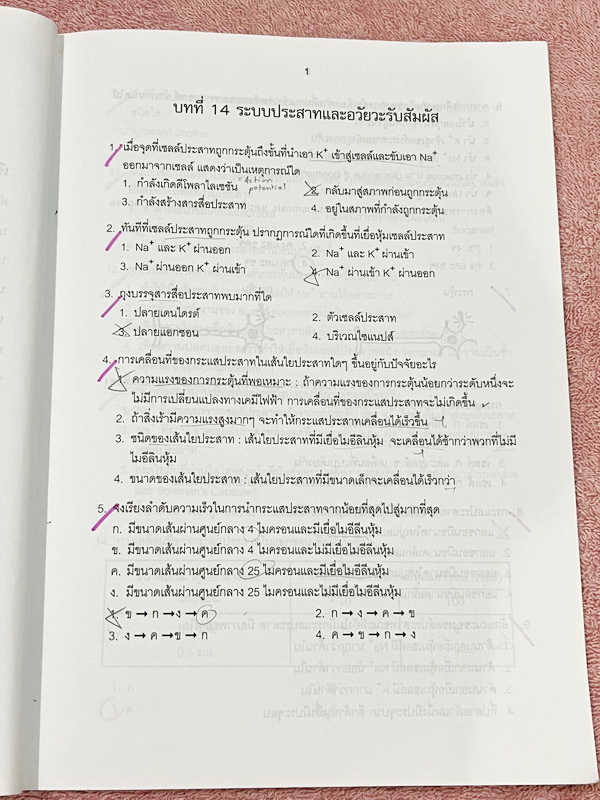 1
บทที่ 14 ระบบประสาทและอวัยวะรับสัมผัส
1. เมื่อจุดที่เซลล์ประสาทถูกกระตุ้นถึงขั้นที่นำเอา K⁺ เข้าสู่เซลล์และขับเอา Na⁺
ออกมาจากเซลล์ แสดงว่าเป็นเหตุการณ์ใด
1. กำลังเกิดดีโพลาไลเซชัน Action potential 2. กลับมาสู่สภาพก่อนถูกกระตุ้น
3. กำลังสร้างสารสื่อประสาท 4. อยู่ในสภาพที่กำลังถูกกระตุ้น
2. ทันทีที่เซลล์ประสาทถูกกระตุ้น ปรากฏการณ์ใดที่เกิดขึ้นที่เยื่อหุ้มเซลล์ประสาท
1. Na⁺ และ K⁺ ผ่านออก 2. Na⁺ และ K⁺ ผ่านเข้า
3. Na⁺ ผ่านออก K⁺ ผ่านเข้า 4. Na⁺ ผ่านเข้า K⁺ ผ่านออก
3. ถุงบรรจุสารสื่อประสาทพบมากที่ใด
1. ปลายเดนไดรต์ 2. ตัวเซลล์ประสาท
3. ปลายแอกซอน 4. บริเวณไซแนปส์
4. การเคลื่อนที่ของกระแสประสาทในเส้นใยประสาทใดๆ ขึ้นอยู่กับปัจจัยอะไร
1. ความแรงของการกระตุ้นที่พอเหมาะ : ถ้าความแรงของการกระตุ้นน้อยกว่าระดับหนึ่งจะ
ไม่มีการเปลี่ยนแปลงทางเคมีไฟฟ้า การเคลื่อนที่ของกระแสประสาทจะไม่เกิดขึ้น
2. ถ้าสิ่งเร้ามีความแรงสูงมากๆ จะทำให้กระแสประสาทเคลื่อนได้เร็วขึ้น
3. ชนิดของเส้นใยประสาท : เส้นใยประสาทที่มีเยื่อไมอีลินหุ้ม จะเคลื่อนได้ช้ากว่าพวกที่ไม่มี
ไมอีลินหุ้ม
4. ขนาดของเส้นใยประสาท : เส้นใยประสาทที่มีขนาดเล็กจะเคลื่อนได้เร็วกว่า
5. จงเรียงลำดับความเร็วในการนำกระแสประสาทจากน้อยที่สุดไปสู่มากที่สุด
ก. มีขนาดเส้นผ่านศูนย์กลาง 4 ไมครอนและมีเยื่อไมอีลินหุ้ม
ข. มีขนาดเส้นผ่านศูนย์กลาง 4 ไมครอนและไม่มีเยื่อไมอีลินหุ้ม
ค. มีขนาดเส้นผ่านศูนย์กลาง 25 ไมครอนและมีเยื่อไมอีลินหุ้ม
ง. มีขนาดเส้นผ่านศูนย์กลาง 25 ไมครอนและไม่มีเยื่อไมอีลินหุ้ม
1. ข → ก → ง → ค 2. ก → ง → ค → ข
3. ง → ค → ข → ก 4. ค → ข → ก → ง